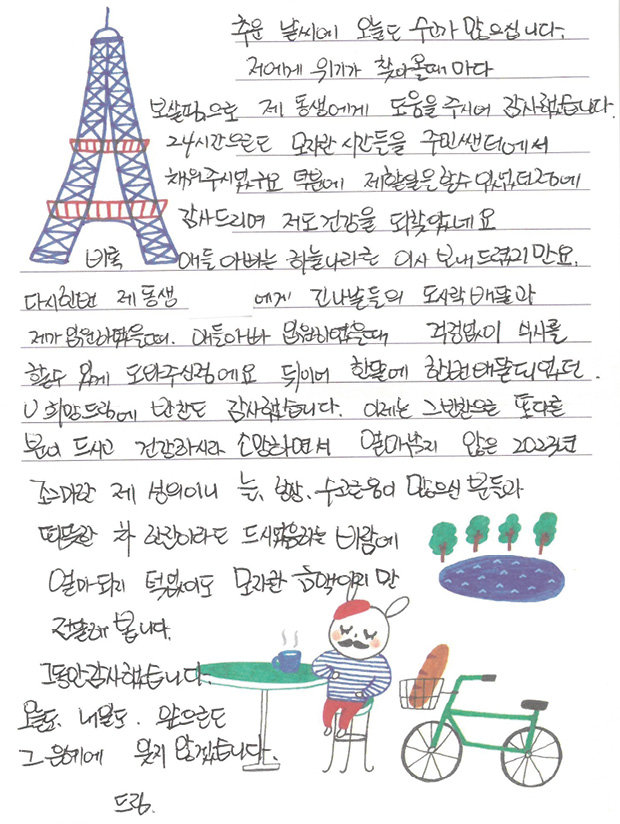 추운 날씨에 오늘도 수고가 많으십니다.
저에게 위기가 찾아올때 마다
보살핌으로 제 동생에게 도움을 주시어 감사했습니다.
24시간으로도 모자란 시간들을 주민쎈터에서
채워주시었구요 덕분에 제할일을할수 있었던것에
감사드리며 저도 건강을 되찾았네요
비록 애들 아빠는 하늘나라로 이사 보내드렸지만요.
다시한번 제 동생 에게 지나날들의 도시락 배달과
제가 입원하였을때. 애들아빠 입원하였을때, 걱정없이 식사를
할수 있게 도와주신점에요 뒤이어 한달에 한번 배달되었던.
U 희망드림에 반찬도 감사했습니다. 이제는 그반찬으로 또다른
분이 드시고 건강하시라 소망하면서 얼마남지 않은 2023년
조그마한 제 성의이니 늘, 항상, 수고로움이 많으신 분들과
따뜻한 차 한잔이라도 드시였음하는 바람에
얼마되지 턱없이도 모자란 금액이지만
전달해 봅니다.
그동안 감사했습니다.
오늘도. 내일도. 앞으로도
그 은혜에 잊지 않겠습니다.
드림.